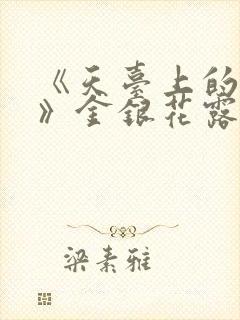 《天臺上的
》金銀花露
梁素雅